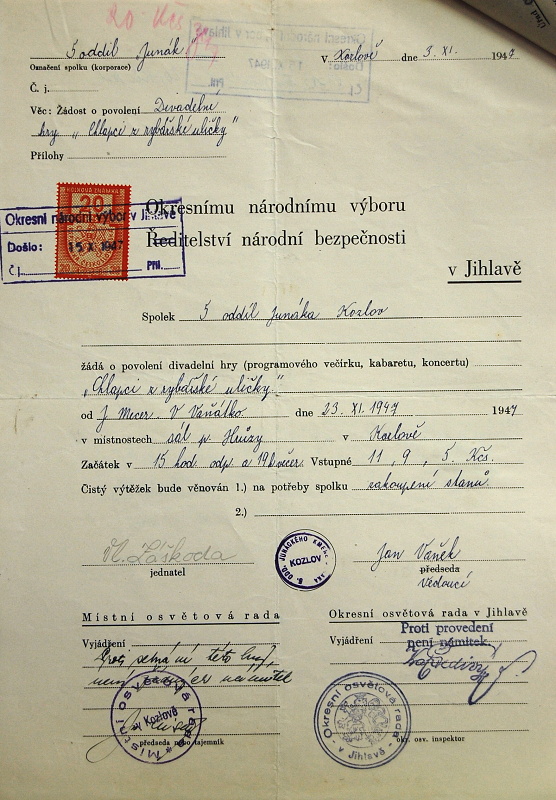 20 Kčs
Okresní národní výbor v Jihlavě
Došlo:
1947
Příl.
5 oddíl „Junák"
V Kozlově dne 3. XI. 1947
Označení spolku (korporace)
Č. j.
Věc: Žádost o povolení Divadelní
hry „Chlapci z rybářské uličky"
Přílohy
KOLKOVÁ ZNÁMKA
20
Okresní národní výbor v Jihlavě
Došlo: 15 X. 1947
Č. j. Příl.
Okresnímu národnímu výboru
Ředitelství národní bezpečnosti
v Jihlavě
Spolek 5 oddíl Junáka Kozlov
žádá o povolení divadelní hry (programového večírku, kabaretu, koncertu)
„Chlapci z rybářské uličky"
od J Mecer. V Vaňátko dne 23. XI. 1947 1947
v místnostech sál p. Hruzy v Kozlově
Začátek v 15 hod. odp. a 19 h večer. Vstupné 11, 9, 5. Kčs.
Čistý výtěžek bude věnován 1.) na potřeby spolku zakoupení stanů.
2.)
Vl. Láškoda
jednatel
5. ODD. JUNÁCKÉHO
KOZLOV
Jan Vaněk
předseda
Vedoucí
Místní osvětová rada
Okresní osvětová rada v Jihlavě
Vyjádření
Proti této hry
není námitek
Vyjádření
Proti provedení
není námitek.
Místní osvětová rada
Kozlově
předseda nebo tajemník
Okresní osvětová rada
v Jihlavě
okr. osv. inspektor